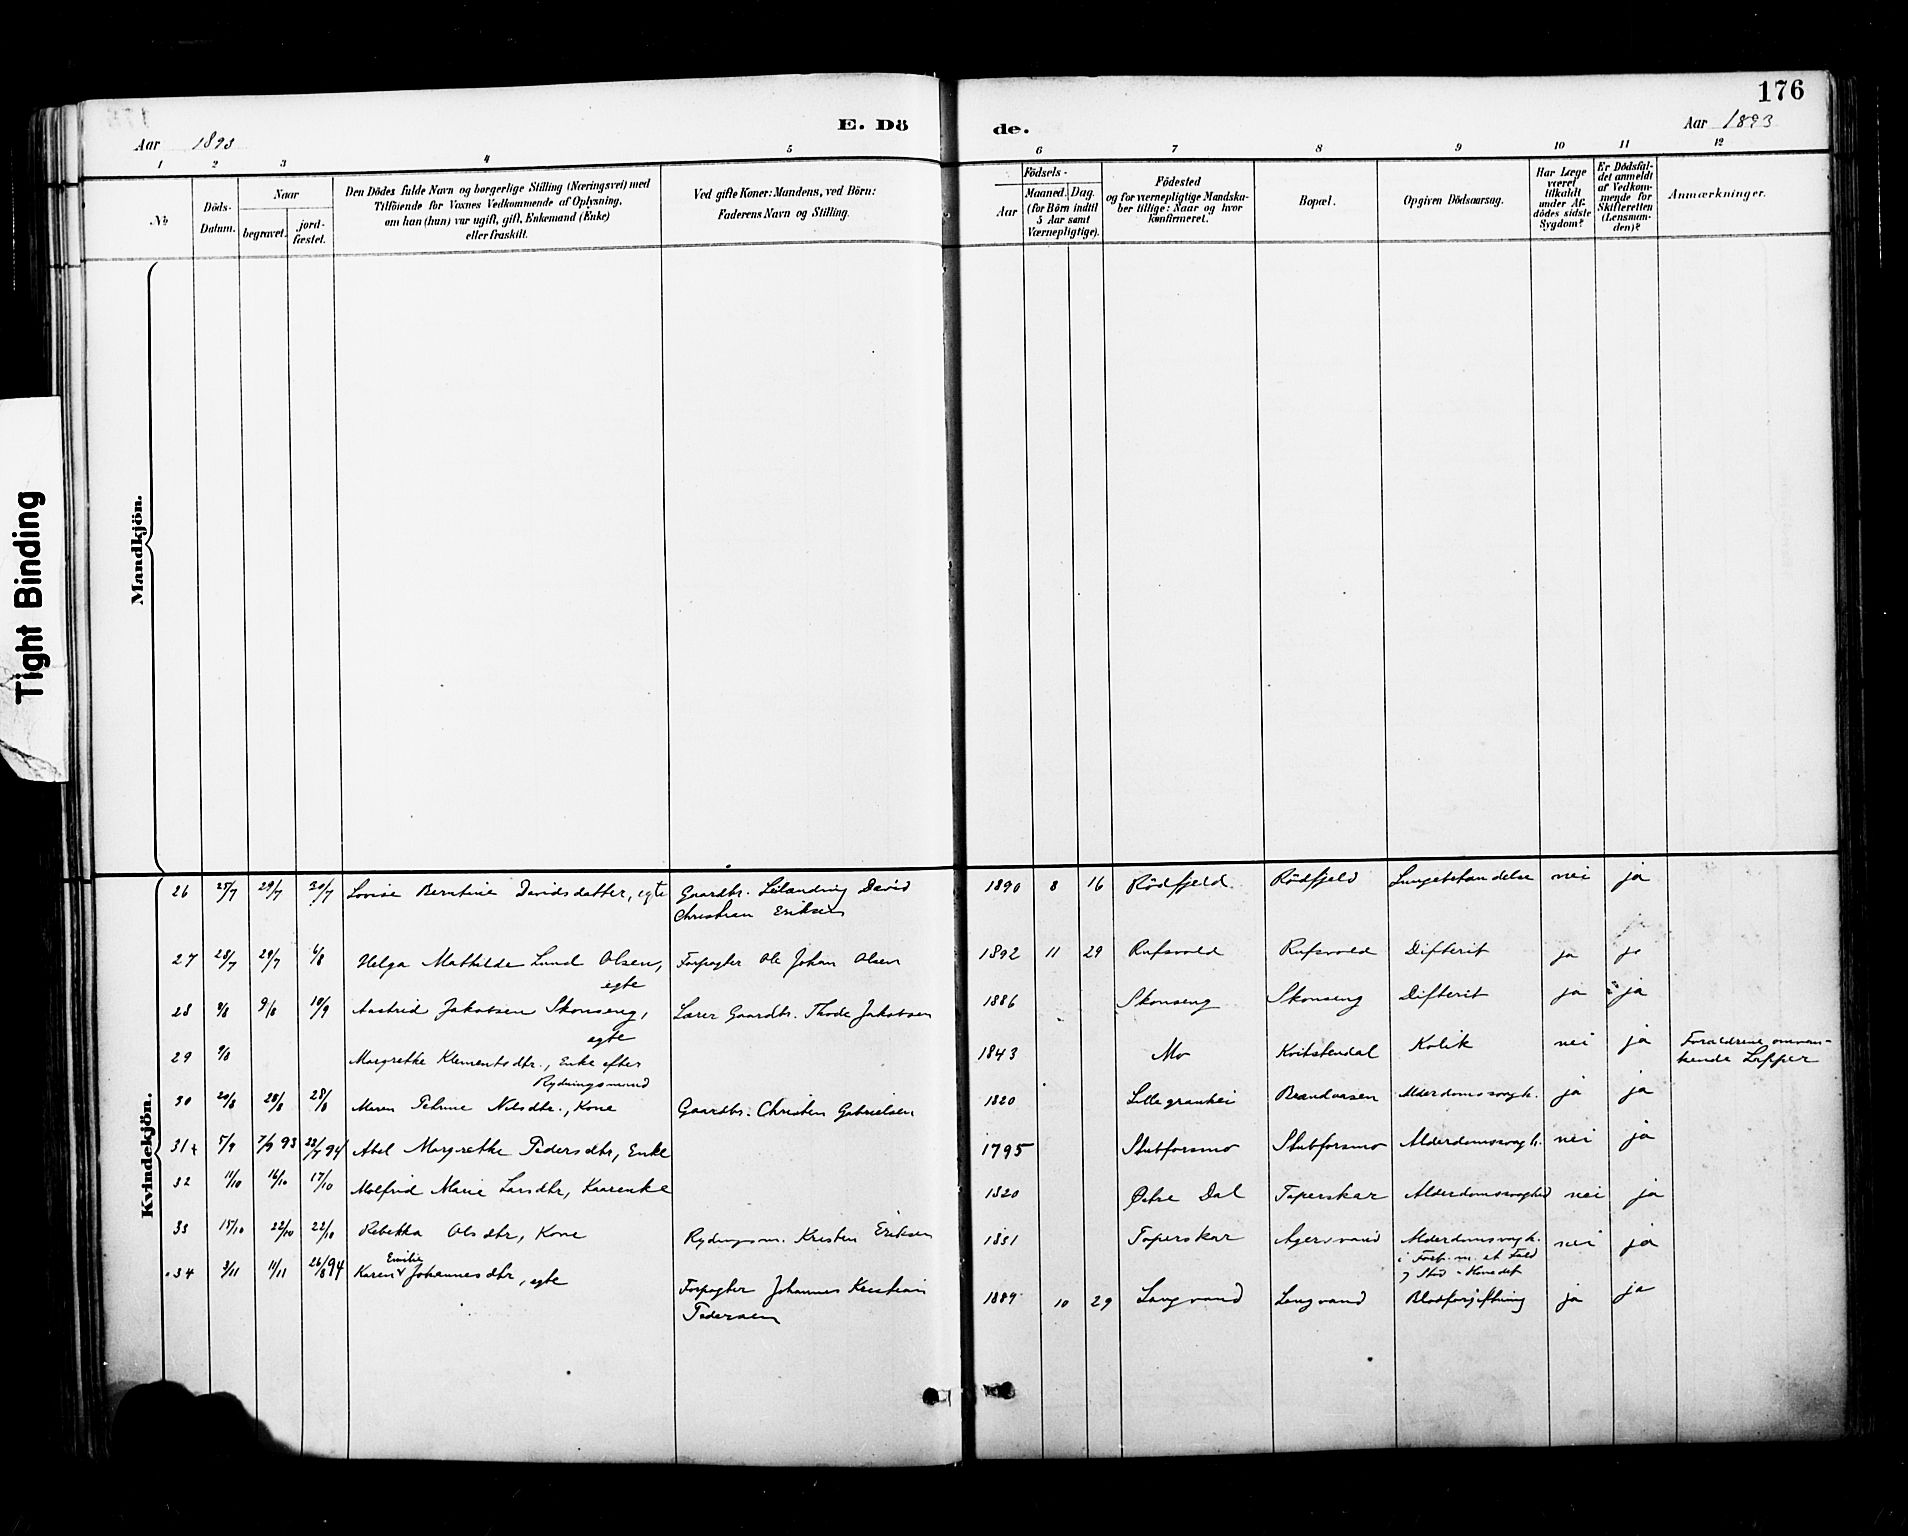 176
E. Dö
de.
Aar 1893
Aar 1893
1 2 3 4 5 6 7 8 9 10 11 12
No
Döds-Datum.
Naar
begravet.
jord-fæstet.
Den Dödes fulde Navn og borgerlige Stilling (Næringsvei) med
Tilföiende for Voxnes Vedkommende af Oplysning,
om han (hun) var ugift, gift, Enkemand (Enke)
eller fraskilt.
Ved gifte Koner: Mandens, ved Börn:
Faderens Navn og Stilling.
Födsels-
Aar
Maaned. Dag.
(for Börn indtil
5 Aar samt
Værnepligtige).
Födested
og for værnepligtige Mandska-
ber tillige: Naar og hvor
konfirmeret.
Bopæl.
Opgiven Dödsaarsag.
Har Læge
været
tilkaldt
under Af-
dödes sidste
Sygdom?
Er Dödsfal-
det anmeldt
af Vedkom-
mende for
Skifteretten
(Lensman-
den)?
Anmærkninger.
Tight Binding
Mandkjön.
Kvindekjön.
26 25/7 29/7 30/7 Lovise Berntine Davidsdatter, egte Gaardbr. Leilænding David 1890 8 16 Rödfjeld Rödfjeld Lungebetændelse nei ja
Christian Eriksen
27 28/7 29/7 6/8 Helga Mathilde Lund Olsen, Forpagter Ole Johan Olsen 1892 11 29 Rufsvold Rufsvold Difterit ja ja
egte
28 9/8 9/8 10/9 Aastrid Jakobsen Skonseng, Lærer Gaardbr. Thode Jakobsen 1886 Skonseng Skonseng Difterit ja ja
egte
29 9/8 Margrethe Klementsdtr., Enke efter 1843 Mo Kvitstendal Kolik nei ja Forældrene omvan-
Rydningsmand
kende Lapper
30 20/8 28/8 28/8 Maren Petrine Nilsdtr., Kone Gaardbr. Christen Gabrielsen 1820 Lillegranhei Brandaasen Alderdomssvagh. ja ja
31 5/9 7/9 93 22/7 94 Abel Margrethe Pedersdtr, Enke 1795 Stubforsmo Stubforsmo Alderdomssvagh. nei ja
32 11/10 16/10 17/10 Molfrid Marie Larsdtr, Kaarenke 1820 Östre Dal Toperskar Alderdomssvaghed nei ja
33 15/10 22/10 22/10 Rebekka Olsdtr, Kone Rydningsm. Kristen Eriksen 1831 Toperskar Agersvand Alderdomssvagh. nei ja
i Forb. m. et Fald
og Stød i Hovedet
34 3/11 11/11 26/8 94 Karen Emilie Johannesdtr, egte Forpagter Johannes Kristian 1889 10 29 Langvand Langvand Blodforgiftning ja ja
Pedersen